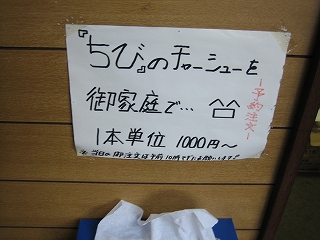 『ちび』のチャーシューを
御家庭で… ^^
1本単位 1000円～
※当日の御注文は午前10時までにお願いします!!
－予約注文－